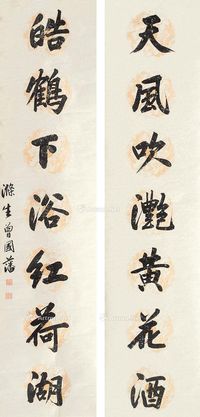 天風吹灩黃花酒
皓鶴下浴紅荷湖
滌生曾國藩